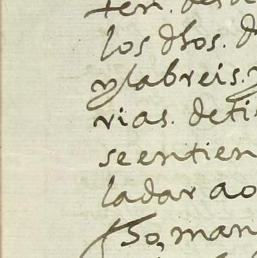 ter. desde
los dhos. d
ylabreis. y
rias. deti
seentien
ladar ao
so, man